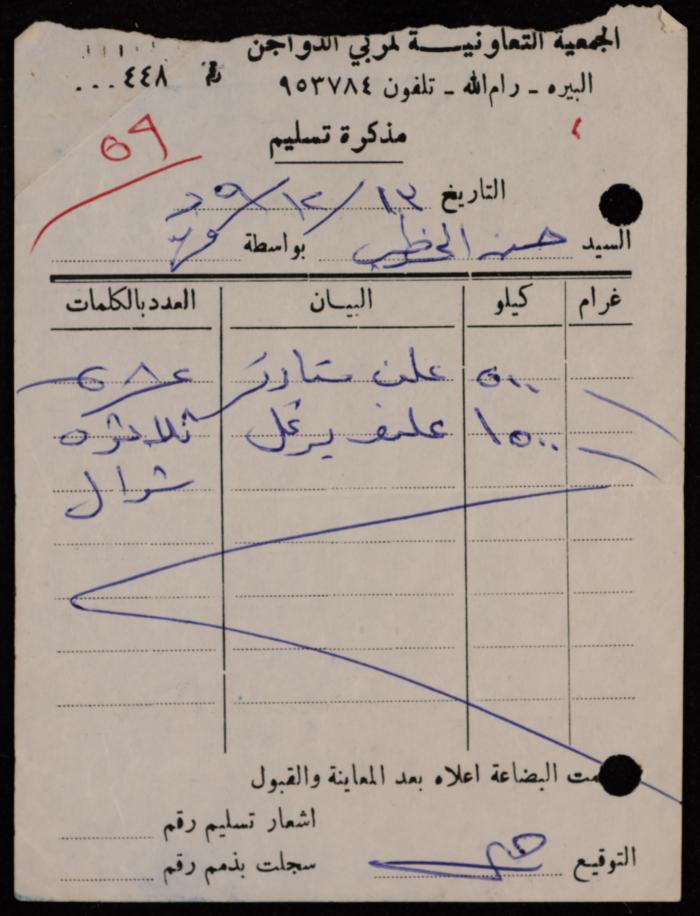 الجمعية التعاونيـــة لمربي الدواجن
البيره ـ رام الله ـ تلفون ٩٥٣٧٨٤
رقم ٤٤٨...
٥٩
مذكرة تسليم
التاريخ ١٣/١٢/
السيد حسن الخطيب بواسطة
غرام كيلو البيــان العدد بالكلمات
٥٠٠ علف ستارتر عشرة
١٥٠٠ علف يرغل ثلاثون
شوال
مت البضاعة اعلاه بعد المعاينة والقبول
اشعار تسليم رقم
التوقيع
سجلت بذمم رقم